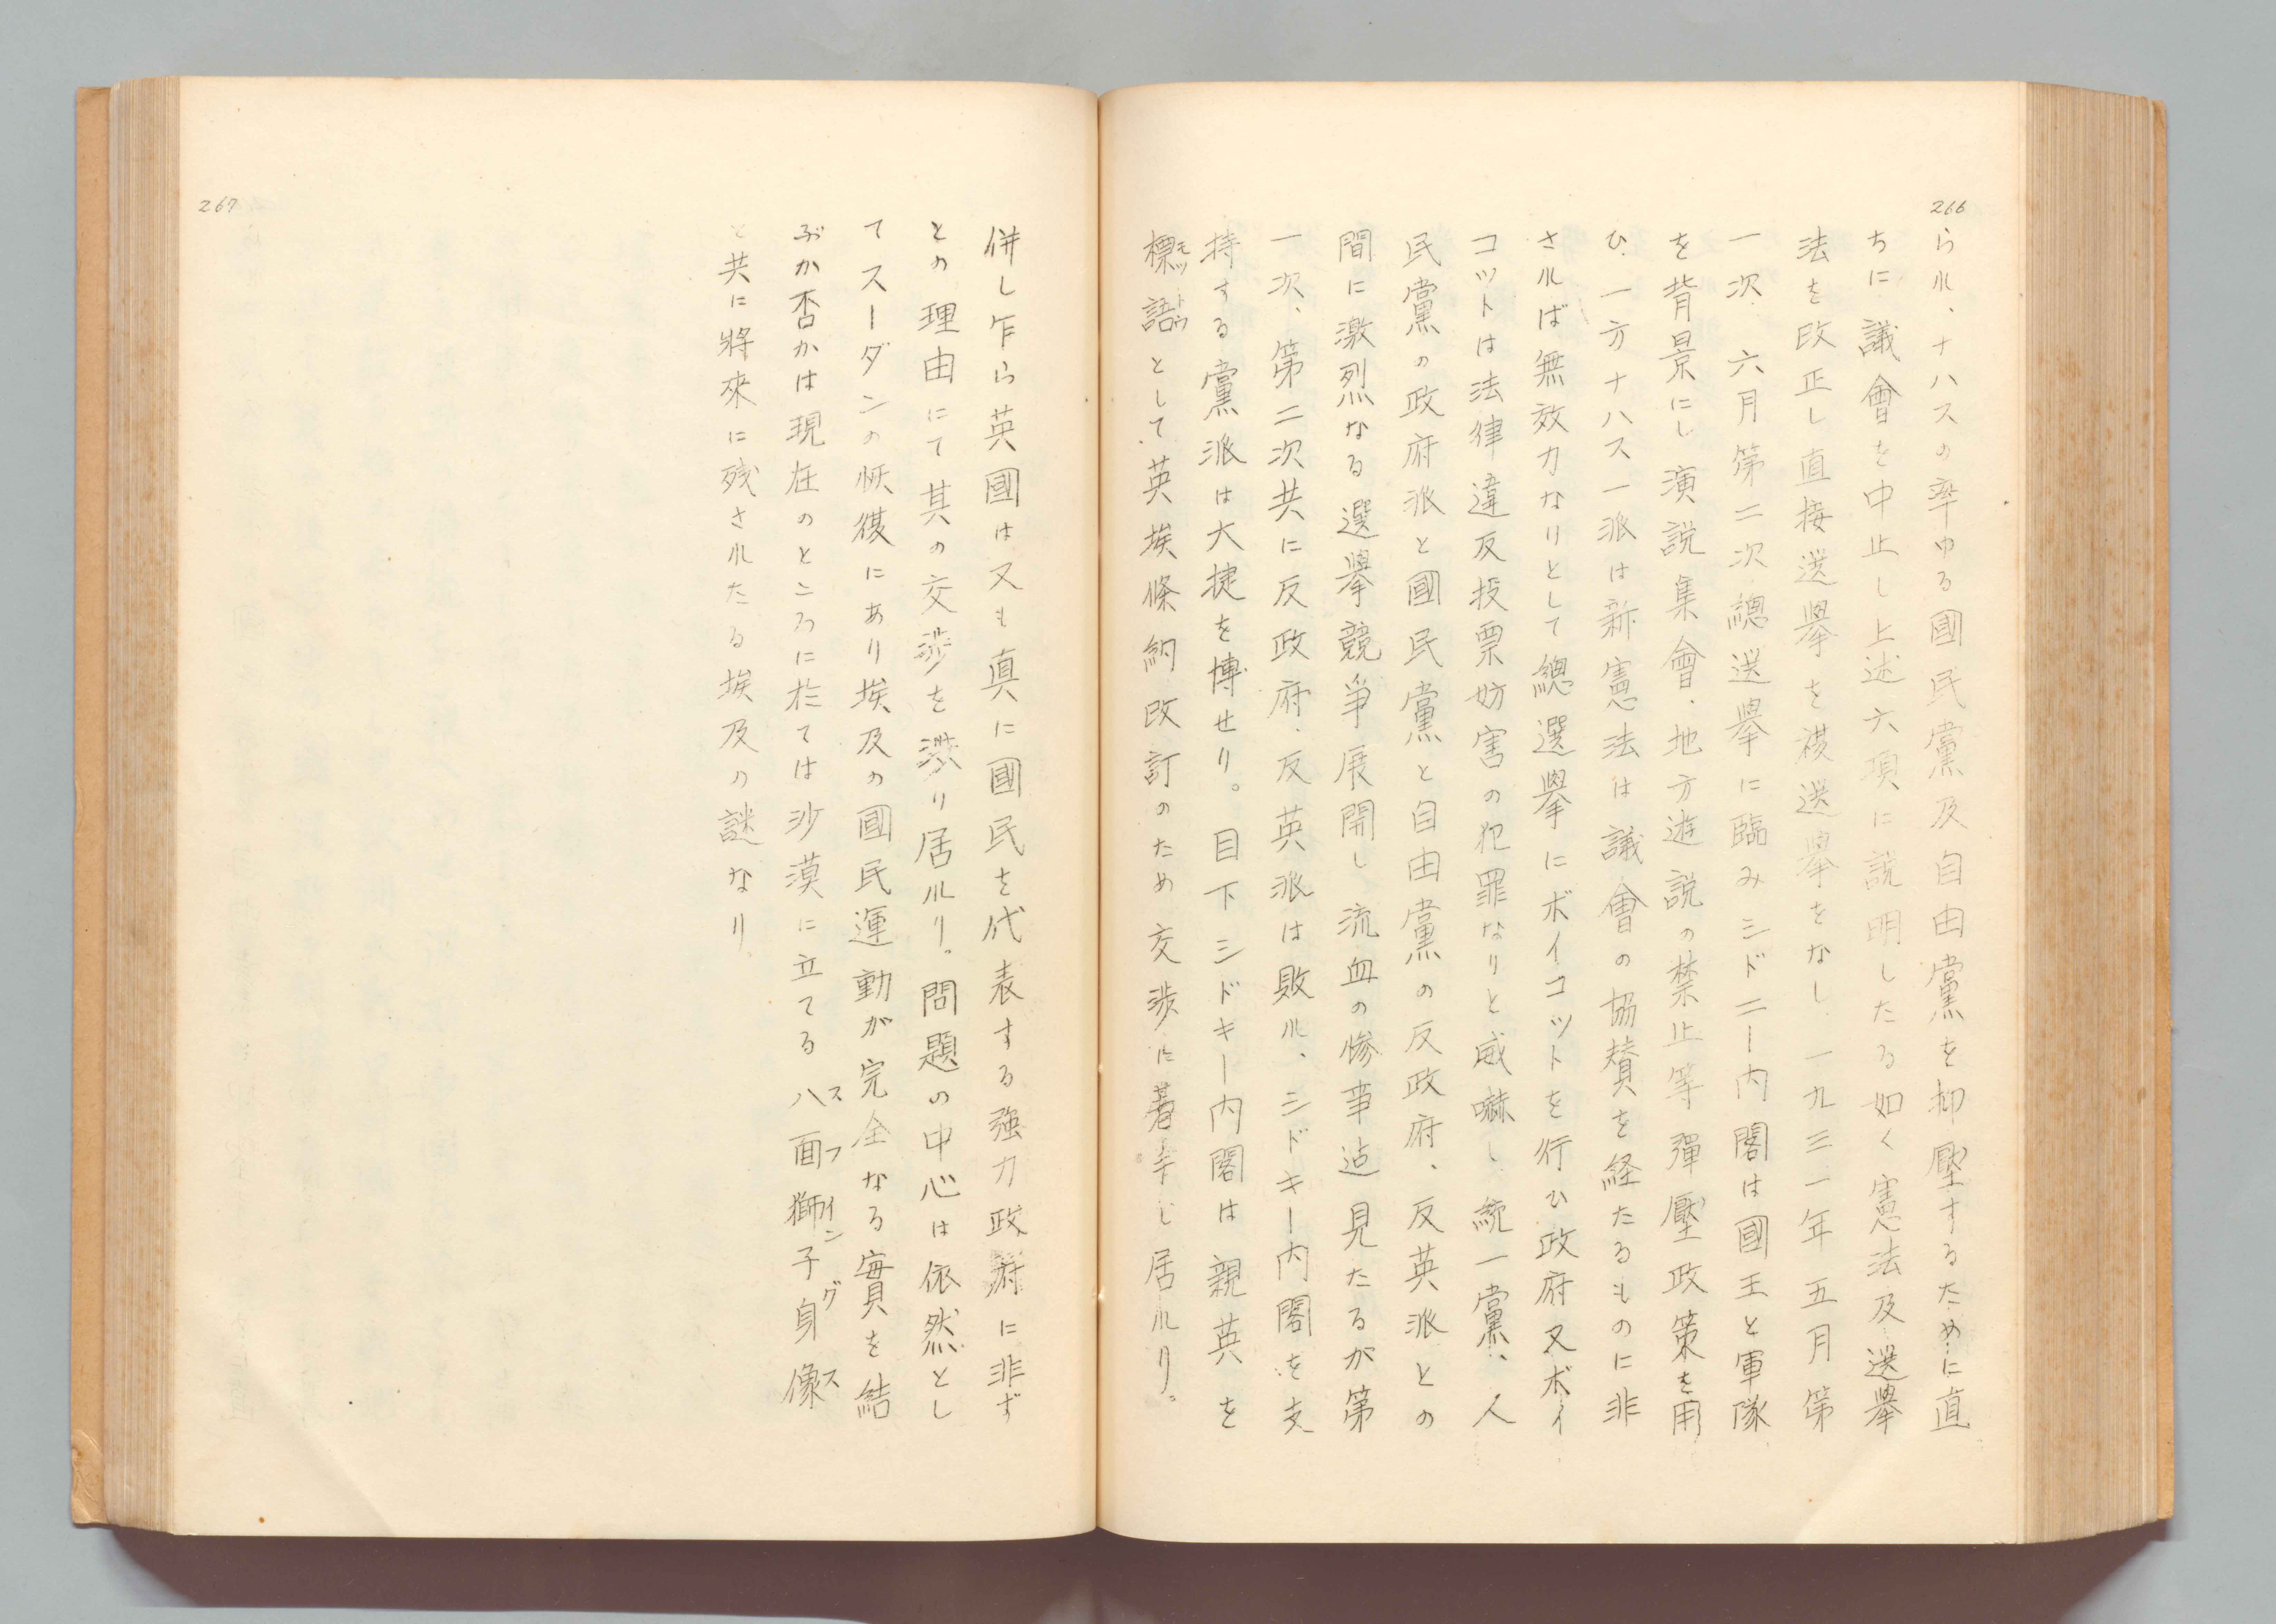 266
られ、ナハスの率ゆる國民黨及自由黨を抑壓するために直
ちに議會を中止し上述六項に説明したる如く憲法及選擧
法を改正し直接選擧を複選擧をなし、一九三一年五月第
一次、六月第二次總選擧に臨みシドニー内閣は國王と軍隊
を背景にし演説集會、地方遊説の禁止等彈壓政策を用
ひ、一方ナハス一派は新憲法は議會の協賛を経たるものに非
されば無效力なりとして總選擧にボイコットを行ひ政府又ボイ
コットは法律違反投票妨害の犯罪なりと威嚇し、統一黨、人
民黨の政府派と國民黨と自由黨の反政府、反英派との
間に激烈なる選擧競爭展開し流血の惨事迠見たるが第
一次、第二次共に反政府、反英派は敗れ、シドキー内閣を支
持する黨派は大捷を博せり。目下シドキー内閣は親英を
標語として、英埃條約改訂のため交渉に着手し居れり。
モットウ
267
併し乍ら英國は又も真に國民を代表する強力政府に非ず
との理由にて其の交渉を渋り居れり。問題の中心は依然とし
てスーダンの恢復にあり埃及の國民運動が完全なる實を結
ぶか否かは現在のところに於ては沙漠に立てる八面獅子身像
スフインクス
と共に將來に残されたる埃及の謎なり。